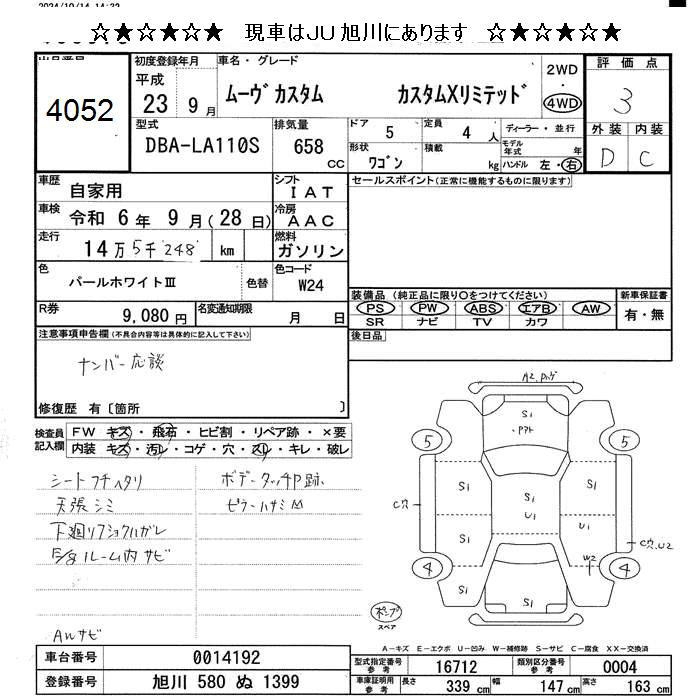 2024/10/14 14:32
☆★☆★☆★☆ 現車はJU旭川にあります ☆★☆★☆★☆
出品番号
4052
初度登録年月
平成
23 9 月
車名・グレード
ムーヴカスタム カスタムXリミテッド
2WD
・
4WD
評価点
3
外装 内装
D C
型式
DBA-LA110S
排気量
658
CC
ドア
5
定員
4 人
形状
ワゴン
積載
kg
ディーラー・並行
モデル年式 年
ハンドル 左・右
車歴
自家用
シフト
IAT
車検
令和 6 年 9 月(28 日)
冷房
AAC
走行
14万5千248 km
燃料
ガソリン
色
パールホワイトⅢ
色替
色コード
W24
R券
9,080 円
名変通知期限
月 日
セールスポイント(正常に機能するものに限ります)
装備品(純正品に限り○をつけてください)
PS PW ABS エアB AW
SR ナビ TV カワ
新車保証書
有・無
後日品
注意事項申告欄(不具合内容等は具体的に記入して下さい)
ナンバー応談
修復歴 有〔箇所 〕
検査員記入欄
FW キズ・飛石・ヒビ割・リペア跡・×要
内装 キズ・汚レ・コゲ・穴・スレ・キレ・破レ
シートフチヘタリ
天張シミ
下廻リフショクハガレ
ルーム内サビ
AWサビ
ボデータッチP跡、
A2
S1
S1
S1
S1
U1
S1
U1
S1
S1
S1
W2
C穴
C穴.U2
5
5
4
4
スペア
A-キズ E-エクボ U-凹み W-補修跡 S-サビ C-腐食 XX-交換済
車台番号
0014192
登録番号
旭川 580 ぬ 1399
型式指定番号
参考
16712
類別区分番号
参考
0004
車庫証明用
参考
長さ
339 cm
幅
147 cm
高さ
163 cm